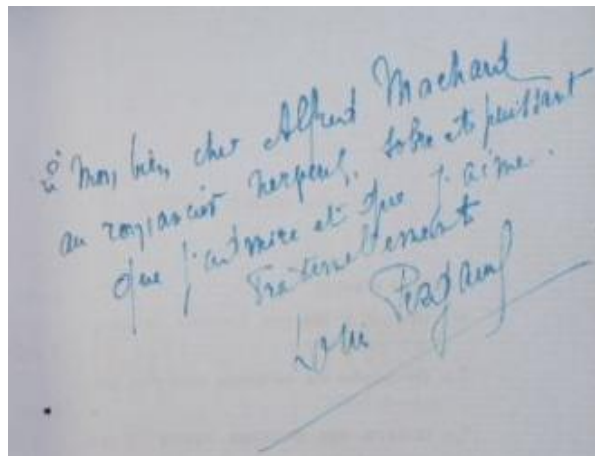 à Mon bien cher Alfred Machard
au romancier nerveux, sobre et puissant
que j'admire et que j'aime.
Fraternellement
Louis Pergaud